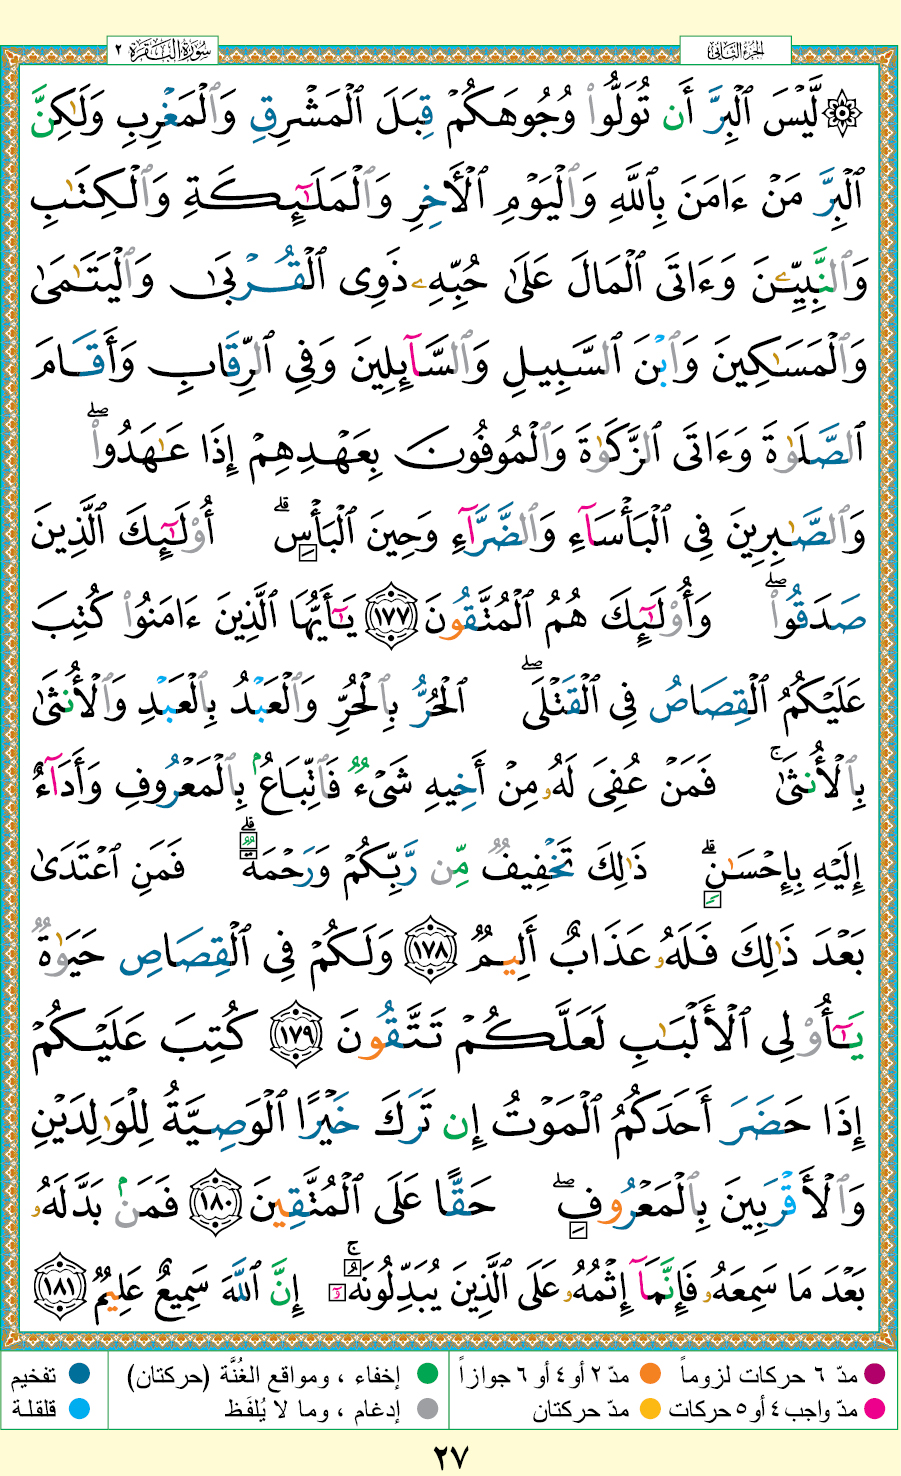 سُورَةُ البَقَرَة ٢
الجزء الثاني
۞ لَّيْسَ ٱلْبِرَّ أَن تُوَلُّوا۟ وُجُوهَكُمْ قِبَلَ ٱلْمَشْرِقِ وَٱلْمَغْرِبِ وَلَـٰكِنَّ
ٱلْبِرَّ مَنْ ءَامَنَ بِٱللَّهِ وَٱلْيَوْمِ ٱلْـَٔاخِرِ وَٱلْمَلَـٰٓئِكَةِ وَٱلْكِتَـٰبِ
وَٱلنَّبِيِّـۧنَ وَءَاتَى ٱلْمَالَ عَلَىٰ حُبِّهِۦ ذَوِى ٱلْقُرْبَىٰ وَٱلْيَتَـٰمَىٰ
وَٱلْمَسَـٰكِينَ وَٱبْنَ ٱلسَّبِيلِ وَٱلسَّآئِلِينَ وَفِى ٱلرِّقَابِ وَأَقَامَ
ٱلصَّلَوٰةَ وَءَاتَى ٱلزَّكَوٰةَ وَٱلْمُوفُونَ بِعَهْدِهِمْ إِذَا عَـٰهَدُوا۟ ۖ
وَٱلصَّـٰبِرِينَ فِى ٱلْبَأْسَآءِ وَٱلضَّرَّآءِ وَحِينَ ٱلْبَأْسِ ۗ أُو۟لَـٰٓئِكَ ٱلَّذِينَ
صَدَقُوا۟ ۖ وَأُو۟لَـٰٓئِكَ هُمُ ٱلْمُتَّقُونَ ١٧٧ يَـٰٓأَيُّهَا ٱلَّذِينَ ءَامَنُوا۟ كُتِبَ
عَلَيْكُمُ ٱلْقِصَاصُ فِى ٱلْقَتْلَى ۖ ٱلْحُرُّ بِٱلْحُرِّ وَٱلْعَبْدُ بِٱلْعَبْدِ وَٱلْأُنثَىٰ
بِٱلْأُنثَىٰ ۚ فَمَنْ عُفِىَ لَهُۥ مِنْ أَخِيهِ شَىْءٌ فَٱتِّبَاعٌۢ بِٱلْمَعْرُوفِ وَأَدَآءٌ
إِلَيْهِ بِإِحْسَـٰنٍ ۗ ذَٰلِكَ تَخْفِيفٌ مِّن رَّبِّكُمْ وَرَحْمَةٌ ۗ فَمَنِ ٱعْتَدَىٰ
بَعْدَ ذَٰلِكَ فَلَهُۥ عَذَابٌ أَلِيمٌ ١٧٨ وَلَكُمْ فِى ٱلْقِصَاصِ حَيَوٰةٌ
يَـٰٓأُو۟لِى ٱلْأَلْبَـٰبِ لَعَلَّكُمْ تَتَّقُونَ ١٧٩ كُتِبَ عَلَيْكُمْ
إِذَا حَضَرَ أَحَدَكُمُ ٱلْمَوْتُ إِن تَرَكَ خَيْرًا ٱلْوَصِيَّةُ لِلْوَٰلِدَيْنِ
وَٱلْأَقْرَبِينَ بِٱلْمَعْرُوفِ ۖ حَقًّا عَلَى ٱلْمُتَّقِينَ ١٨٠ فَمَنۢ بَدَّلَهُۥ
بَعْدَ مَا سَمِعَهُۥ فَإِنَّمَآ إِثْمُهُۥ عَلَى ٱلَّذِينَ يُبَدِّلُونَهُۥٓ ۚ إِنَّ ٱللَّهَ سَمِيعٌ عَلِيمٌ ١٨١
مدّ ٦ حركات لزوماً مدّ ٢ أو ٤ أو ٦ جوازاً إخفاء ، ومواقع الغُنَّة (حركتان) تفخيم
مدّ واجب ٤ أو ٥ حركات مدّ حركتان إدغام ، وما لا يُلفَظ قلقلة
٢٧